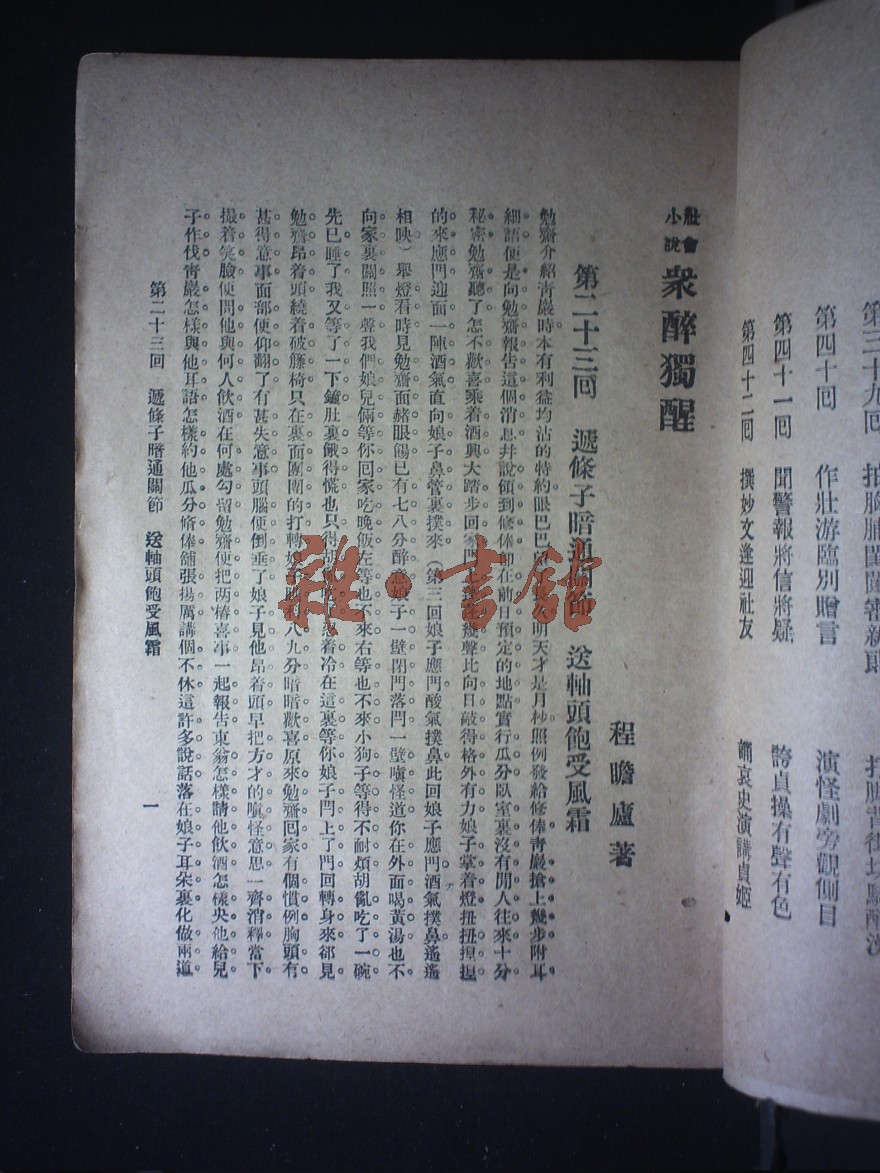 第三十九回
第四十回 作壯游臨別贈言 演怪劇旁觀側目
第四十一回 聞警報將信將疑 誇貞操有聲有色
第四十二回 撰妙文逢迎社友 嗣哀史演講貞姬
社會小說 衆醉獨醒
程瞻廬著
第二十三回 遞條子暗通關節 送軸頭飽受風霜
勉齋介紹靑嚴時本有利益均沾的特約眼巴巴明天才是月杪照例發給修俸靑嚴搶上幾步附耳
細語便是向勉齋報告這個消息幷說領到修俸卽在前日預定的地點實行瓜分臥室裏沒有閒人往來十分
秘密勉齋聽了怎不歡喜乘着酒興大踏步回家門上幾聲比向日敲得格外有力娘子掌着燈扭扭揑揑
的來應門迎面一陣酒氣直向娘子鼻管裏撲來（第三回娘子應門酸氣撲鼻此回娘子應門酒氣撲鼻遙遙
相映）舉燈看時見勉齋面赭眼餳已有七八分醉意娘子一壁閉門落閂一壁嗔怪道你在外面喝黃湯也不
向家裏關照一聲我們娘兒倆等你回家吃晚飯左等也不來右等也不來小狗子等得不耐煩胡亂吃了一碗
先已睡了我又等了一下鐘肚裏餓得慌也只得胡着冷在這裏等你娘子閂上了門回轉身來卻見
勉齋昂着頭繞着破籐椅只在裏面團團的打轉娘子八九分暗暗歡喜原來勉齋回家有個慣例胸頭有
甚得意事面部便仰翻了有甚失意事頭腦便倒垂了娘子見他昂着頭早把方才的嗔怪意思一齊消釋當下
撮着笑臉便問他與何人飲酒在何處勾留勉齋便把两樁喜事一起報告東翁怎樣請他飲酒怎樣央他給兒
子作伐靑嚴怎樣與他耳語怎樣約他瓜分脩俸舖張揚厲講個不休這許多說話落在娘子耳朵裏化做兩道
第二十三回 遞條子暗通關節 送軸頭飽受風霜 一
雜·書館